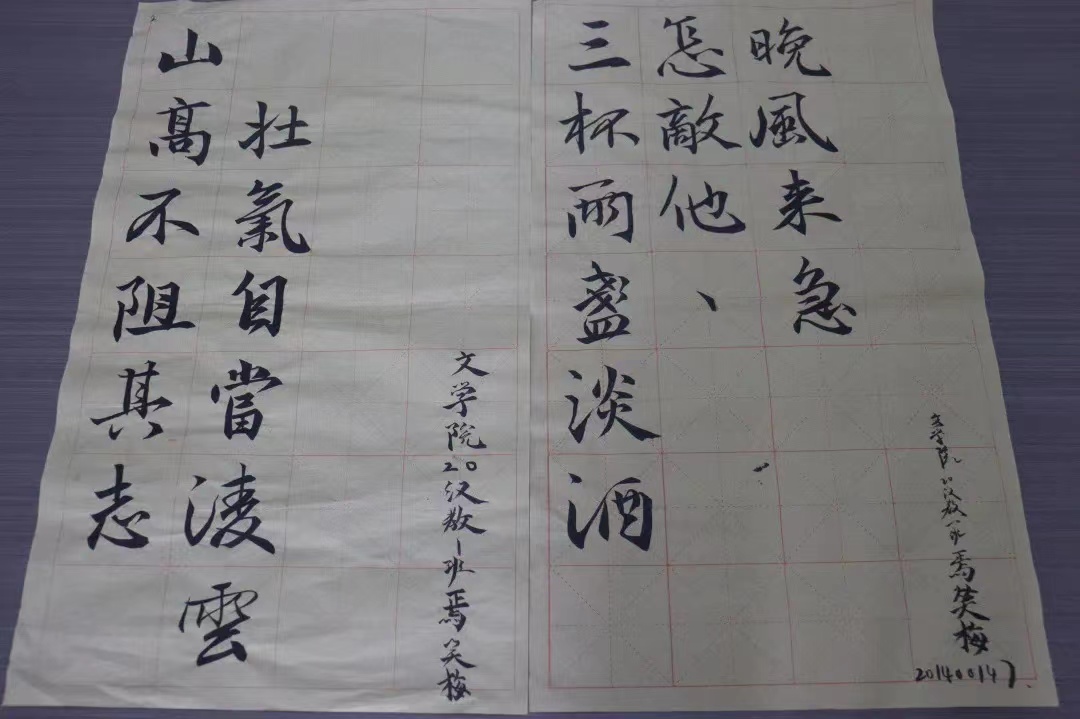 山高不阻其志
壮氣自當淩雲
文学院20汉教1班焉笑梅
三杯兩盞淡酒
怎敵他、
晚風来急
文学院汉教焉笑梅